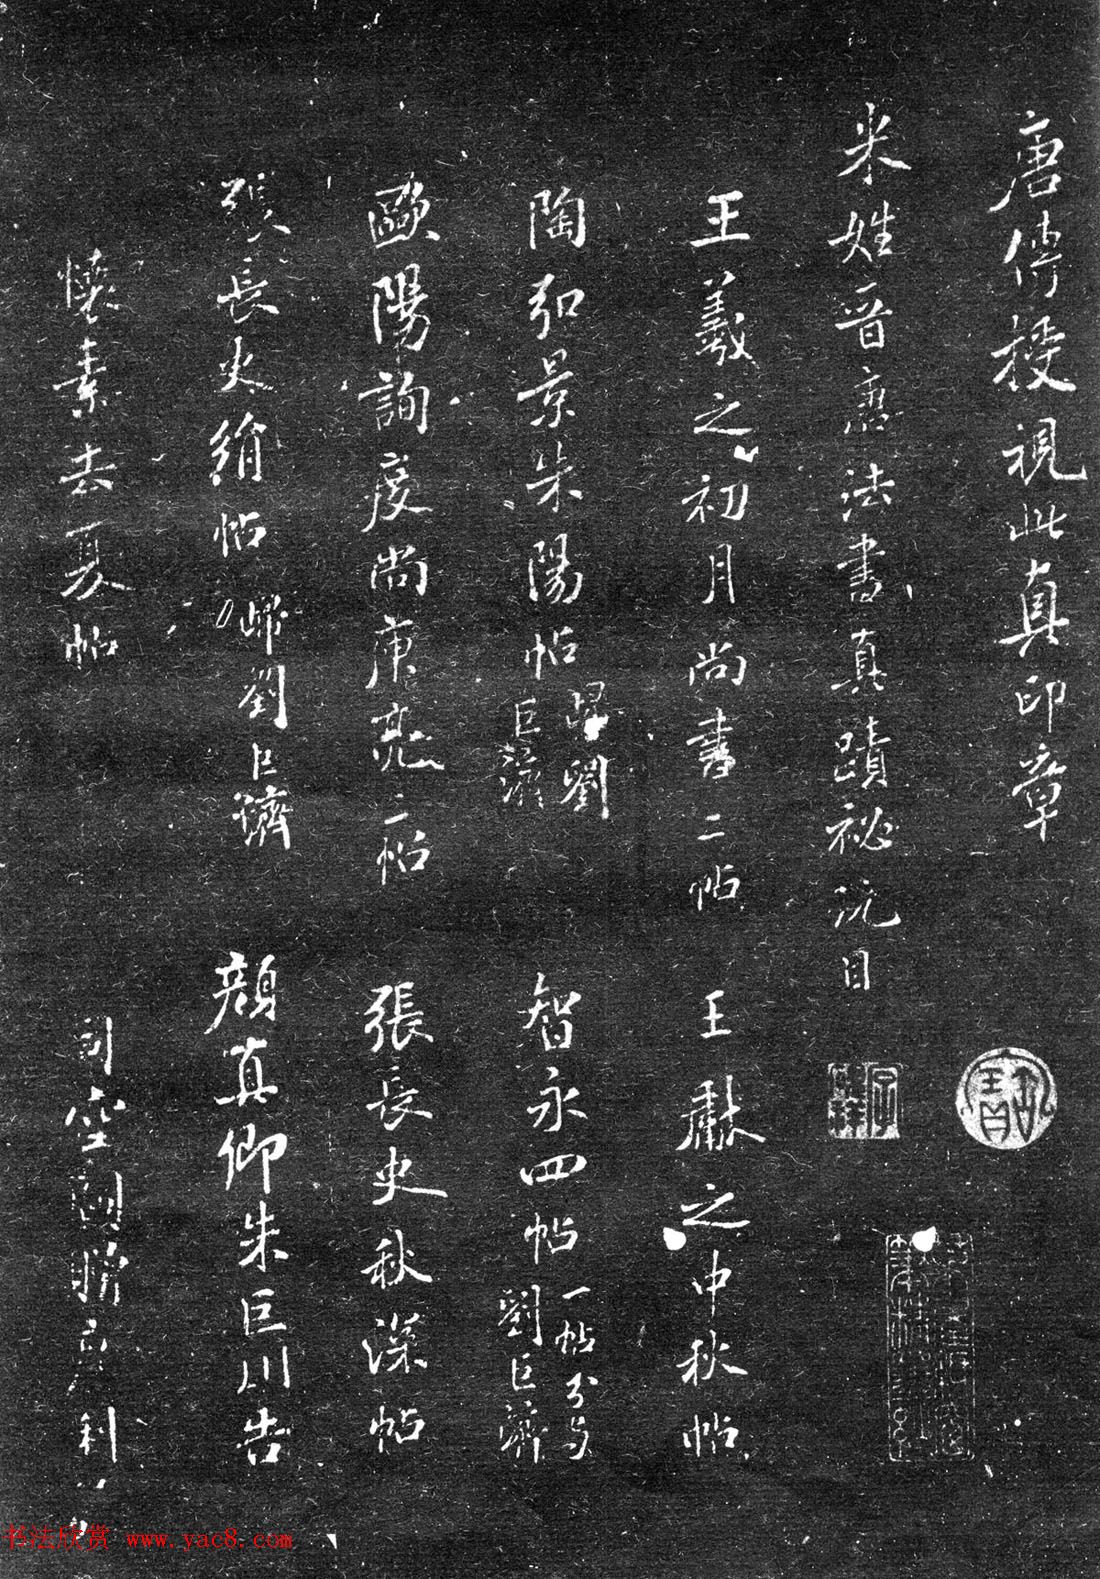 唐傅授視此真印章
米姓晉唐法書真蹟祕沅目
王羲之初月尚書二帖 王獻之中秋帖
陶弘景朱陽帖 歸劉巨濟 智永四帖 一帖分与劉巨濟
歐陽詢度尚庾亮二帖 張長史秋深帖
張長史絹帖 歸劉巨濟 顏真卿朱巨川告
懷素去夏帖 司空圖贈
书法欣赏 www.yac8.com